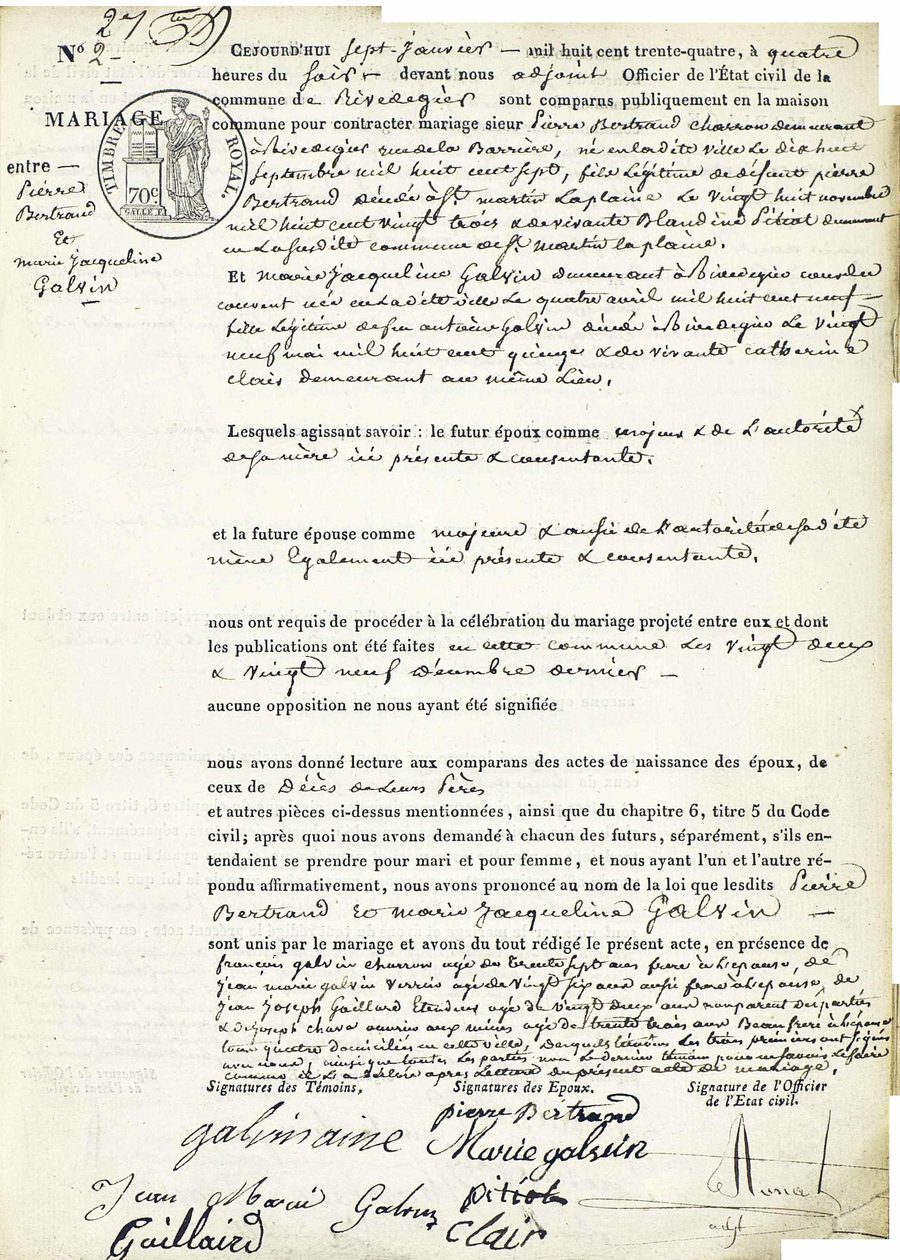 2
Nº 2
MARIAGE
entre
Pierre
Bertrand
Et
marie Jacqueline
Galvin
TIMBRE ROYAL.
70c.
CEJOURD'HUI sept janvier — mil huit cent trente-quatre, à quatre
heures du soir devant nous adjoint Officier de l'État civil de la
commune de Rivedegier sont comparus publiquement en la maison
commune pour contracter mariage sieur Pierre Bertrand charron demeurant
à Rivedegier rue de la Barrière, né en la dite ville Le dix huit
septembre mil huit cent sept, fils Légitime de défunt pierre
Bertrand décédé à St. martin Laplaine Le vingt huit novembre
mil huit cent vingt trois & de vivante Blandine Pitiot demeurant
en La susdite commune de St. martin la plaine.
Et marie Jacqueline Galvin demeurant à Rivedegier cour du
couvent née en La dite ville Le quatre avril mil huit cent neuf
fille Légitime de feu antoine Galvin décédé à Rivedegier Le vingt
neuf mai mil huit cent quinze & de vivante catherine
clair demeurant au même Lieu.
Lesquels agissant savoir : le futur époux comme majeur & de L'autorité
de sa mère ici présente & consentante.
et la future épouse comme majeure & aussi de l'autorité de sa dite
mère Egalement ici présente & consentante.
nous ont requis de procéder à la célébration du mariage projeté entre eux et dont
les publications ont été faites en cette commune Les vingt deux
& vingt neuf décembre dernier —
aucune opposition ne nous ayant été signifiée
nous avons donné lecture aux comparans des actes de naissance des époux, de
ceux de Décès de Leurs Pères
et autres pièces ci-dessus mentionnées, ainsi que du chapitre 6, titre 5 du Code
civil; après quoi nous avons demandé à chacun des futurs, séparément, s'ils en-
tendaient se prendre pour mari et pour femme, et nous ayant l'un et l'autre ré-
pondu affirmativement, nous avons prononcé au nom de la loi que lesdits Pierre
Bertrand Et marie Jacqueline Galvin —
sont unis par le mariage et avons du tout rédigé le présent acte, en présence de
françois galvin charron agé de trente sept ans frere à L'epouse, de
Jean marie galvin verrier agé de vingt six ans aussi frere à L'epouse, de
Jean Joseph Gaillard agé de vingt deux ans non parent des parties
& de Joseph chava ouvrier aux mines agé de trente trois ans Beau frere à L'épouse
tous quatre domiciliés en cette ville, Lesquels témoins Les trois premiers ont signés
avec nous, ainsi que toutes Les parties non Le dernier témoin pour ne savoir Le faire
comme il L'a déclaré après Lecture du présent acte de mariage.
Signatures des Témoins, Signatures des Epoux. Signature de l'Officier
de l'Etat civil.
pierre Bertrand
galvin aine Marie galvin
Jean Marie Galvin pitiot
Gaillaird Clair
adjt